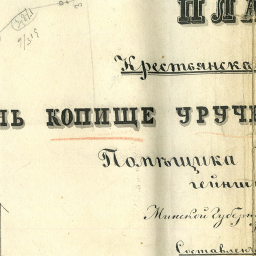 ПЛА
Крестьянска
НЬ КОПИЩЕ УРУЧЬ
Помѣщика
гейнш
Минской Губерн
Составлен